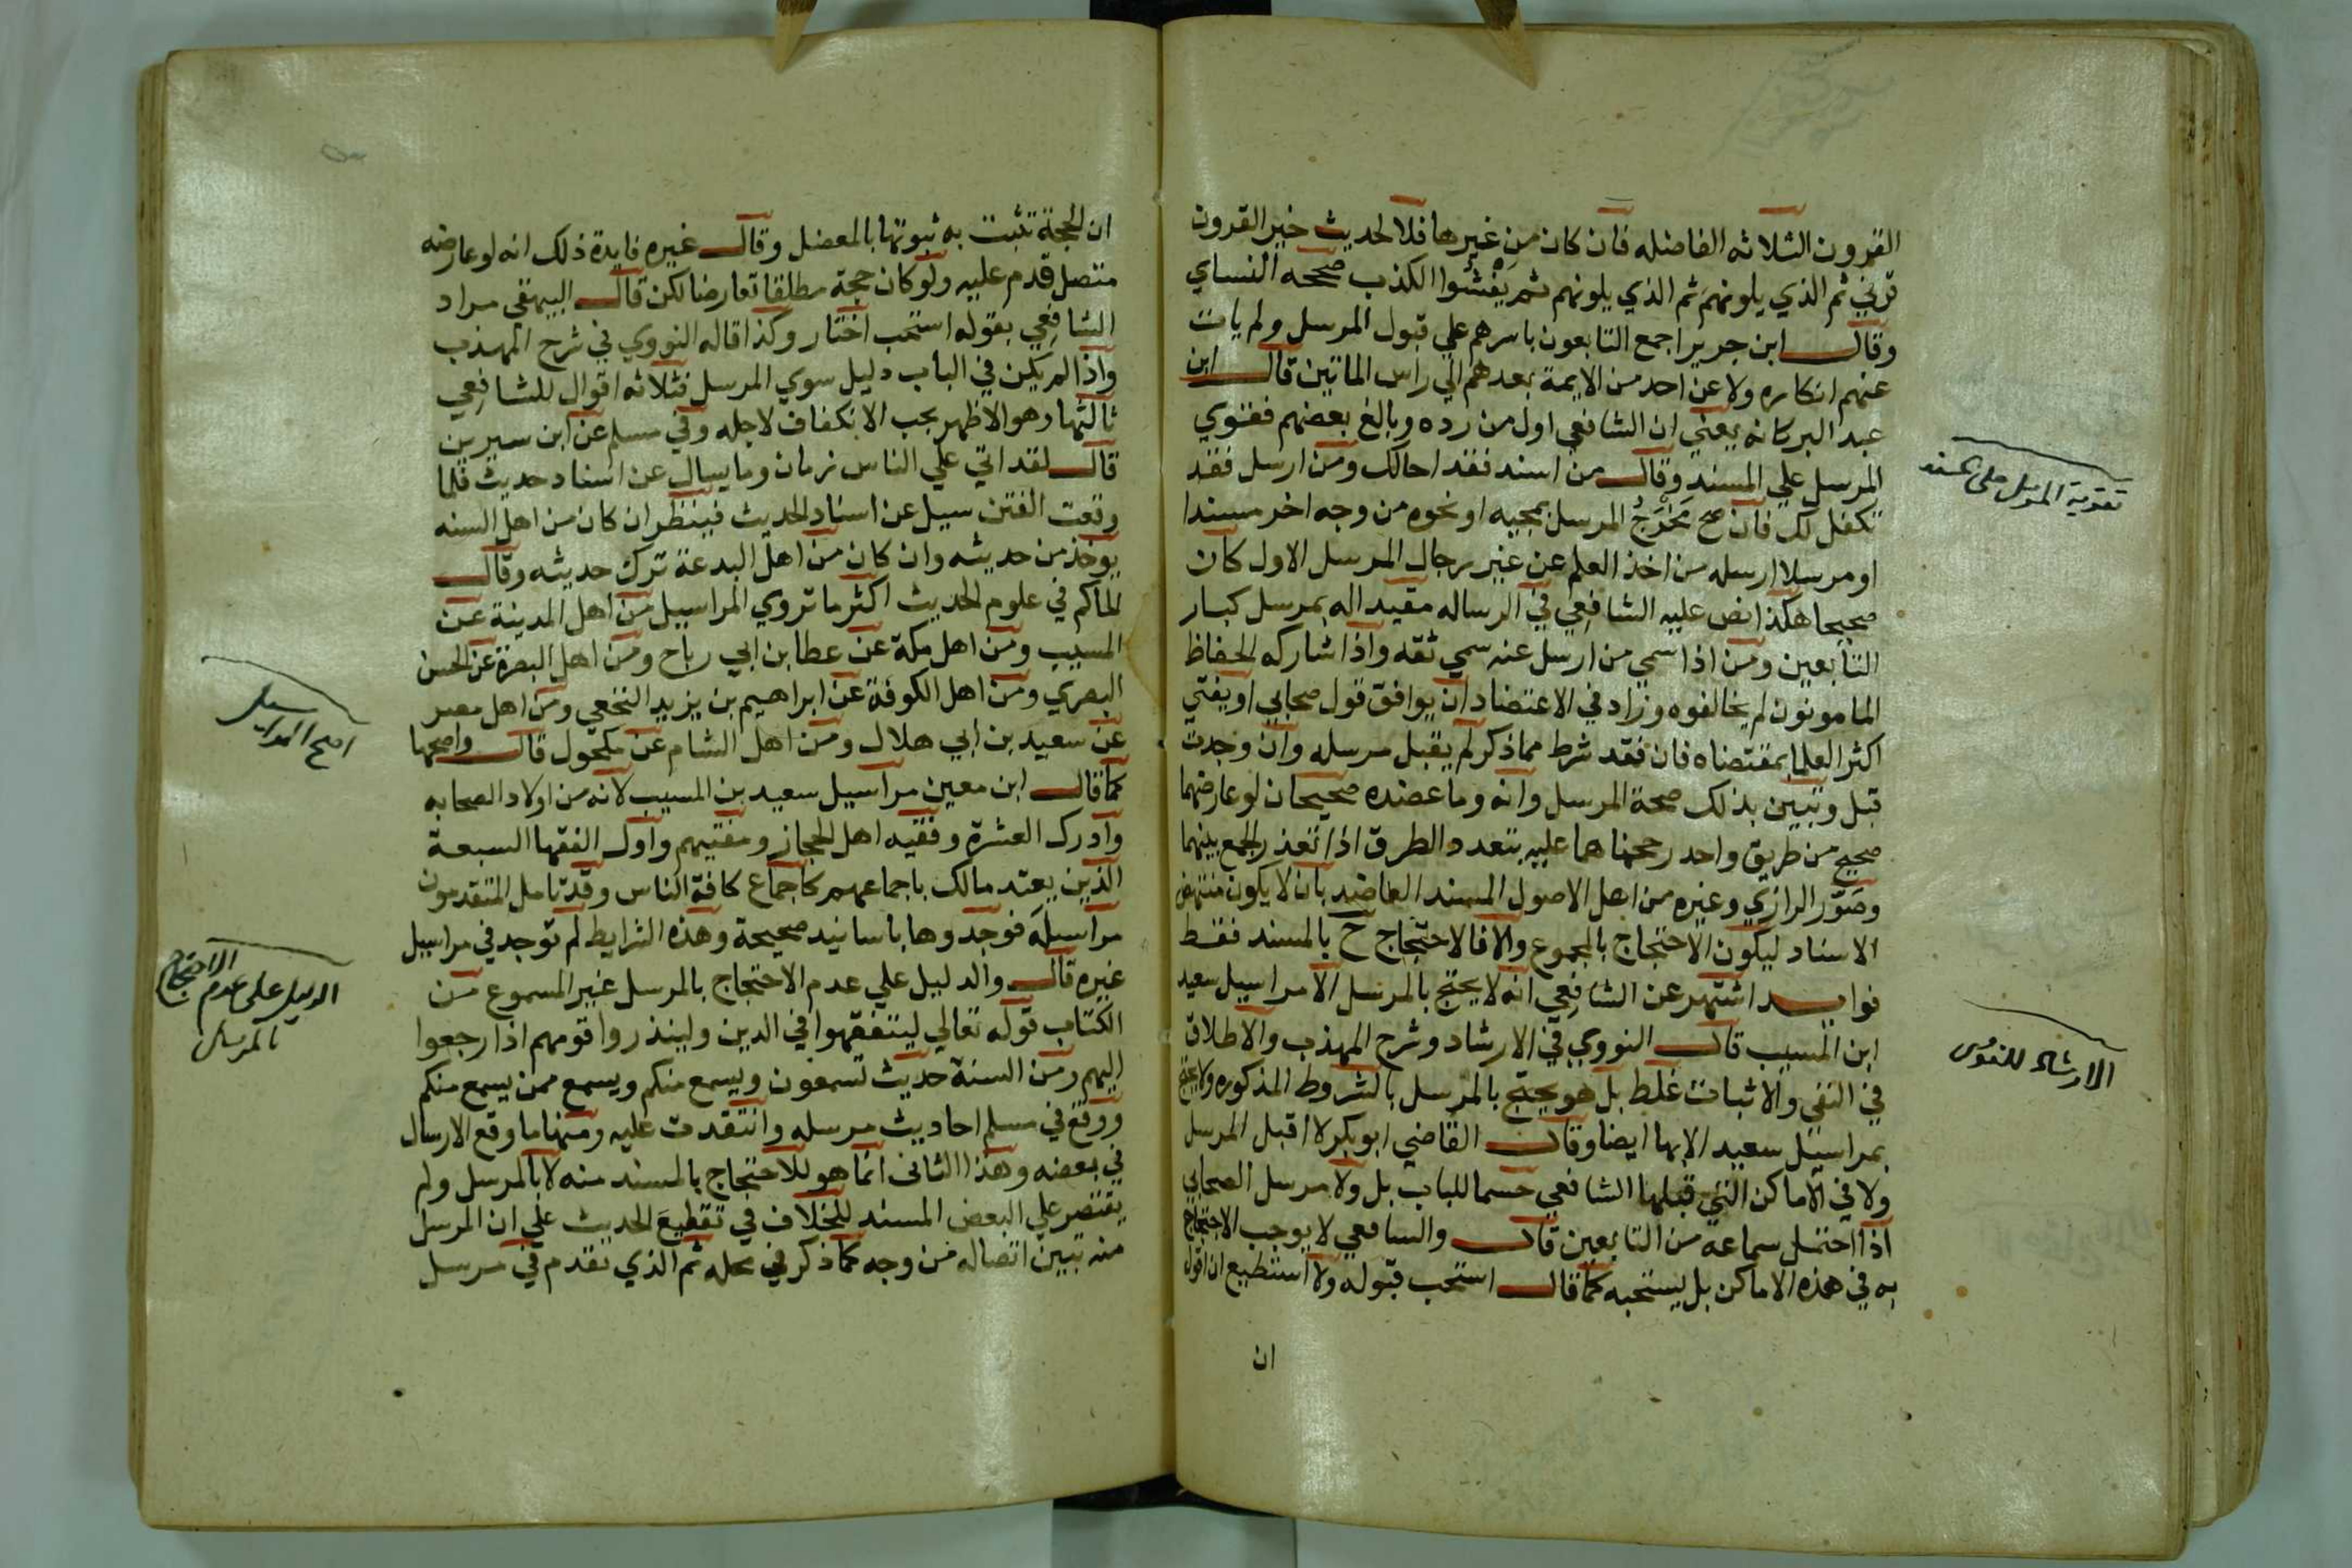 القرون الثلاثه الفاضله فان كان من غيرها فلا لحديث خير القرون
قرني ثم الذي يلونهم ثم الذي يلونهم ثم يفشوا الكذب صححه النساي
وقال ابن جرير اجمع التابعون باسرهم علي قبول المرسل ولم يات
عنهم انكاره ولا عن احد من الايمة بعدهم الي راس الماتين قال ابن
عبد البر كانه يعني ان الشافعي اول من رده وبالغ بعضهم فقوي
المرسل علي المسند وقال من اسند فقد احالك ومن ارسل فقد
تكفل لك فان صح مخرج المرسل بمجيه او نحوه من وجه اخر مسندا
او مرسلا ارسله من اخذ العلم عن غير رجال المرسل الاول كان
صحيحا هكذا نص عليه الشافعي في الرساله مقيدا له بمرسل كبار
التابعين ومن اذا سمي من ارسل عنه سمي ثقه واذا شاركه الحفاظ
المامونون لم يخالفوه وزاد في الاعتضاد ان يوافق قول صحابي او يفتي
اكثر العلما بمقتضاه فان فقد شرط مما ذكر لم يقبل مرسله وان وجدت
قبل وتبين بذلك صحة المرسل وانه وما عضده صحيحان لو عارضهما
صحيح من طريق واحد رجحناهما عليه بتعدد الطرق اذا تعذر الجمع بينهما
وصور الرازي وغيره من اهل الاصول المسند العاضد بان لا يكون منتهض
الاسناد ليكون الاحتجاج بالمجموع والا فالاحتجاج ح بالمسند فقط
فوايد اشتهر عن الشافعي انه لا يحتج بالمرسل الا مراسيل سعيد
ابن المسيب قال النووي في الارشاد وشرح المهذب والاطلاق
في النفي والاثبات غلط بل هو يحتج بالمرسل بالشروط المذكوره ولا يحتج
بمراسيل سعيد الا بها ايضا وقال القاضي ابو بكر لا اقبل المرسل
ولا في الاماكن التي قبلها الشافعي حسما للباب بل ولا مرسل الصحابي
اذا احتمل سماعه من التابعين قال والشافعي لا يوجب الاحتجاج
به في هذه الاماكن بل يستحبه كما قال استحب قبوله ولا استطيع ان اقول
ان
تقوية المرسل على المسند
الارشاد للنووى
ان الحجة تثبت به ثبوتها بالمعضل وقال غيره فايدة ذلك انه لو عارضه
متصل قدم عليه ولو كان حجة مطلقا تعارضا لكن قال البيهقي مراد
الشافعي بقوله استحب اختار وكذا قاله النووي في شرح المهذب
واذا لم يكن في الباب دليل سوي المرسل فثلاثه اقوال للشافعي
ثالثها وهو الاظهر يجب الانكفاف لاجله وفي مسلم عن ابن سيرين
قال لقد اتي علي الناس زمان وما يسال عن اسناد حديث فلما
وقعت الفتن سيل عن اسناد الحديث فينظر ان كان من اهل السنه
يوخذ من حديثه وان كان من اهل البدعة ترك حديثه وقال
الحاكم في علوم الحديث اكثر ما تروي المراسيل من اهل المدينة عن
المسيب ومن اهل مكة عن عطا بن ابي رباح ومن اهل البصرة عن الحسن
البصري ومن اهل الكوفة عن ابراهيم بن يزيد النخعي ومن اهل مصر
عن سعيد بن ابي هلال ومن اهل الشام عن مكحول قال واصحها
كما قال ابن معين مراسيل سعيد بن المسيب لانه من اولاد الصحابه
وادرك العشرة وفقيه اهل الحجاز ومفتيهم واول الفقها السبعة
الذين يعتد مالك باجماعهم كاجماع كافة الناس وقد تامل المتقدمون
مراسيله فوجدوها باسانيد صحيحة وهذه الشرايط لم توجد في مراسيل
غيره قال والدليل علي عدم الاحتجاج بالمرسل غير المسموع من
الكتاب قوله تعالي ليتفقهوا في الدين ولينذروا قومهم اذا رجعوا
اليهم ومن السنة حديث تسمعون ويسمع منكم ويسمع ممن يسمع منكم
ووقع في مسلم احاديث مرسله وانتقدت عليه ومنها ما وقع الارسال
في بعضه وهذا الثاني انما هو للاحتجاج بالمسند منه لا بالمرسل ولم
يقتصر علي البعض المسند للخلاف في تقطيع الحديث علي ان المرسل
منه تبين اتصاله من وجه كما ذكر في محله ثم الذي تقدم في مرسل
اصح المراسيل
الدليل على عدم الاحتجاج
بالمرسل